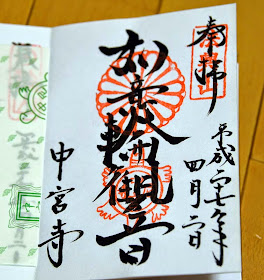 奉拝
平成二七年
四月二日
如意輪觀音
中宮寺